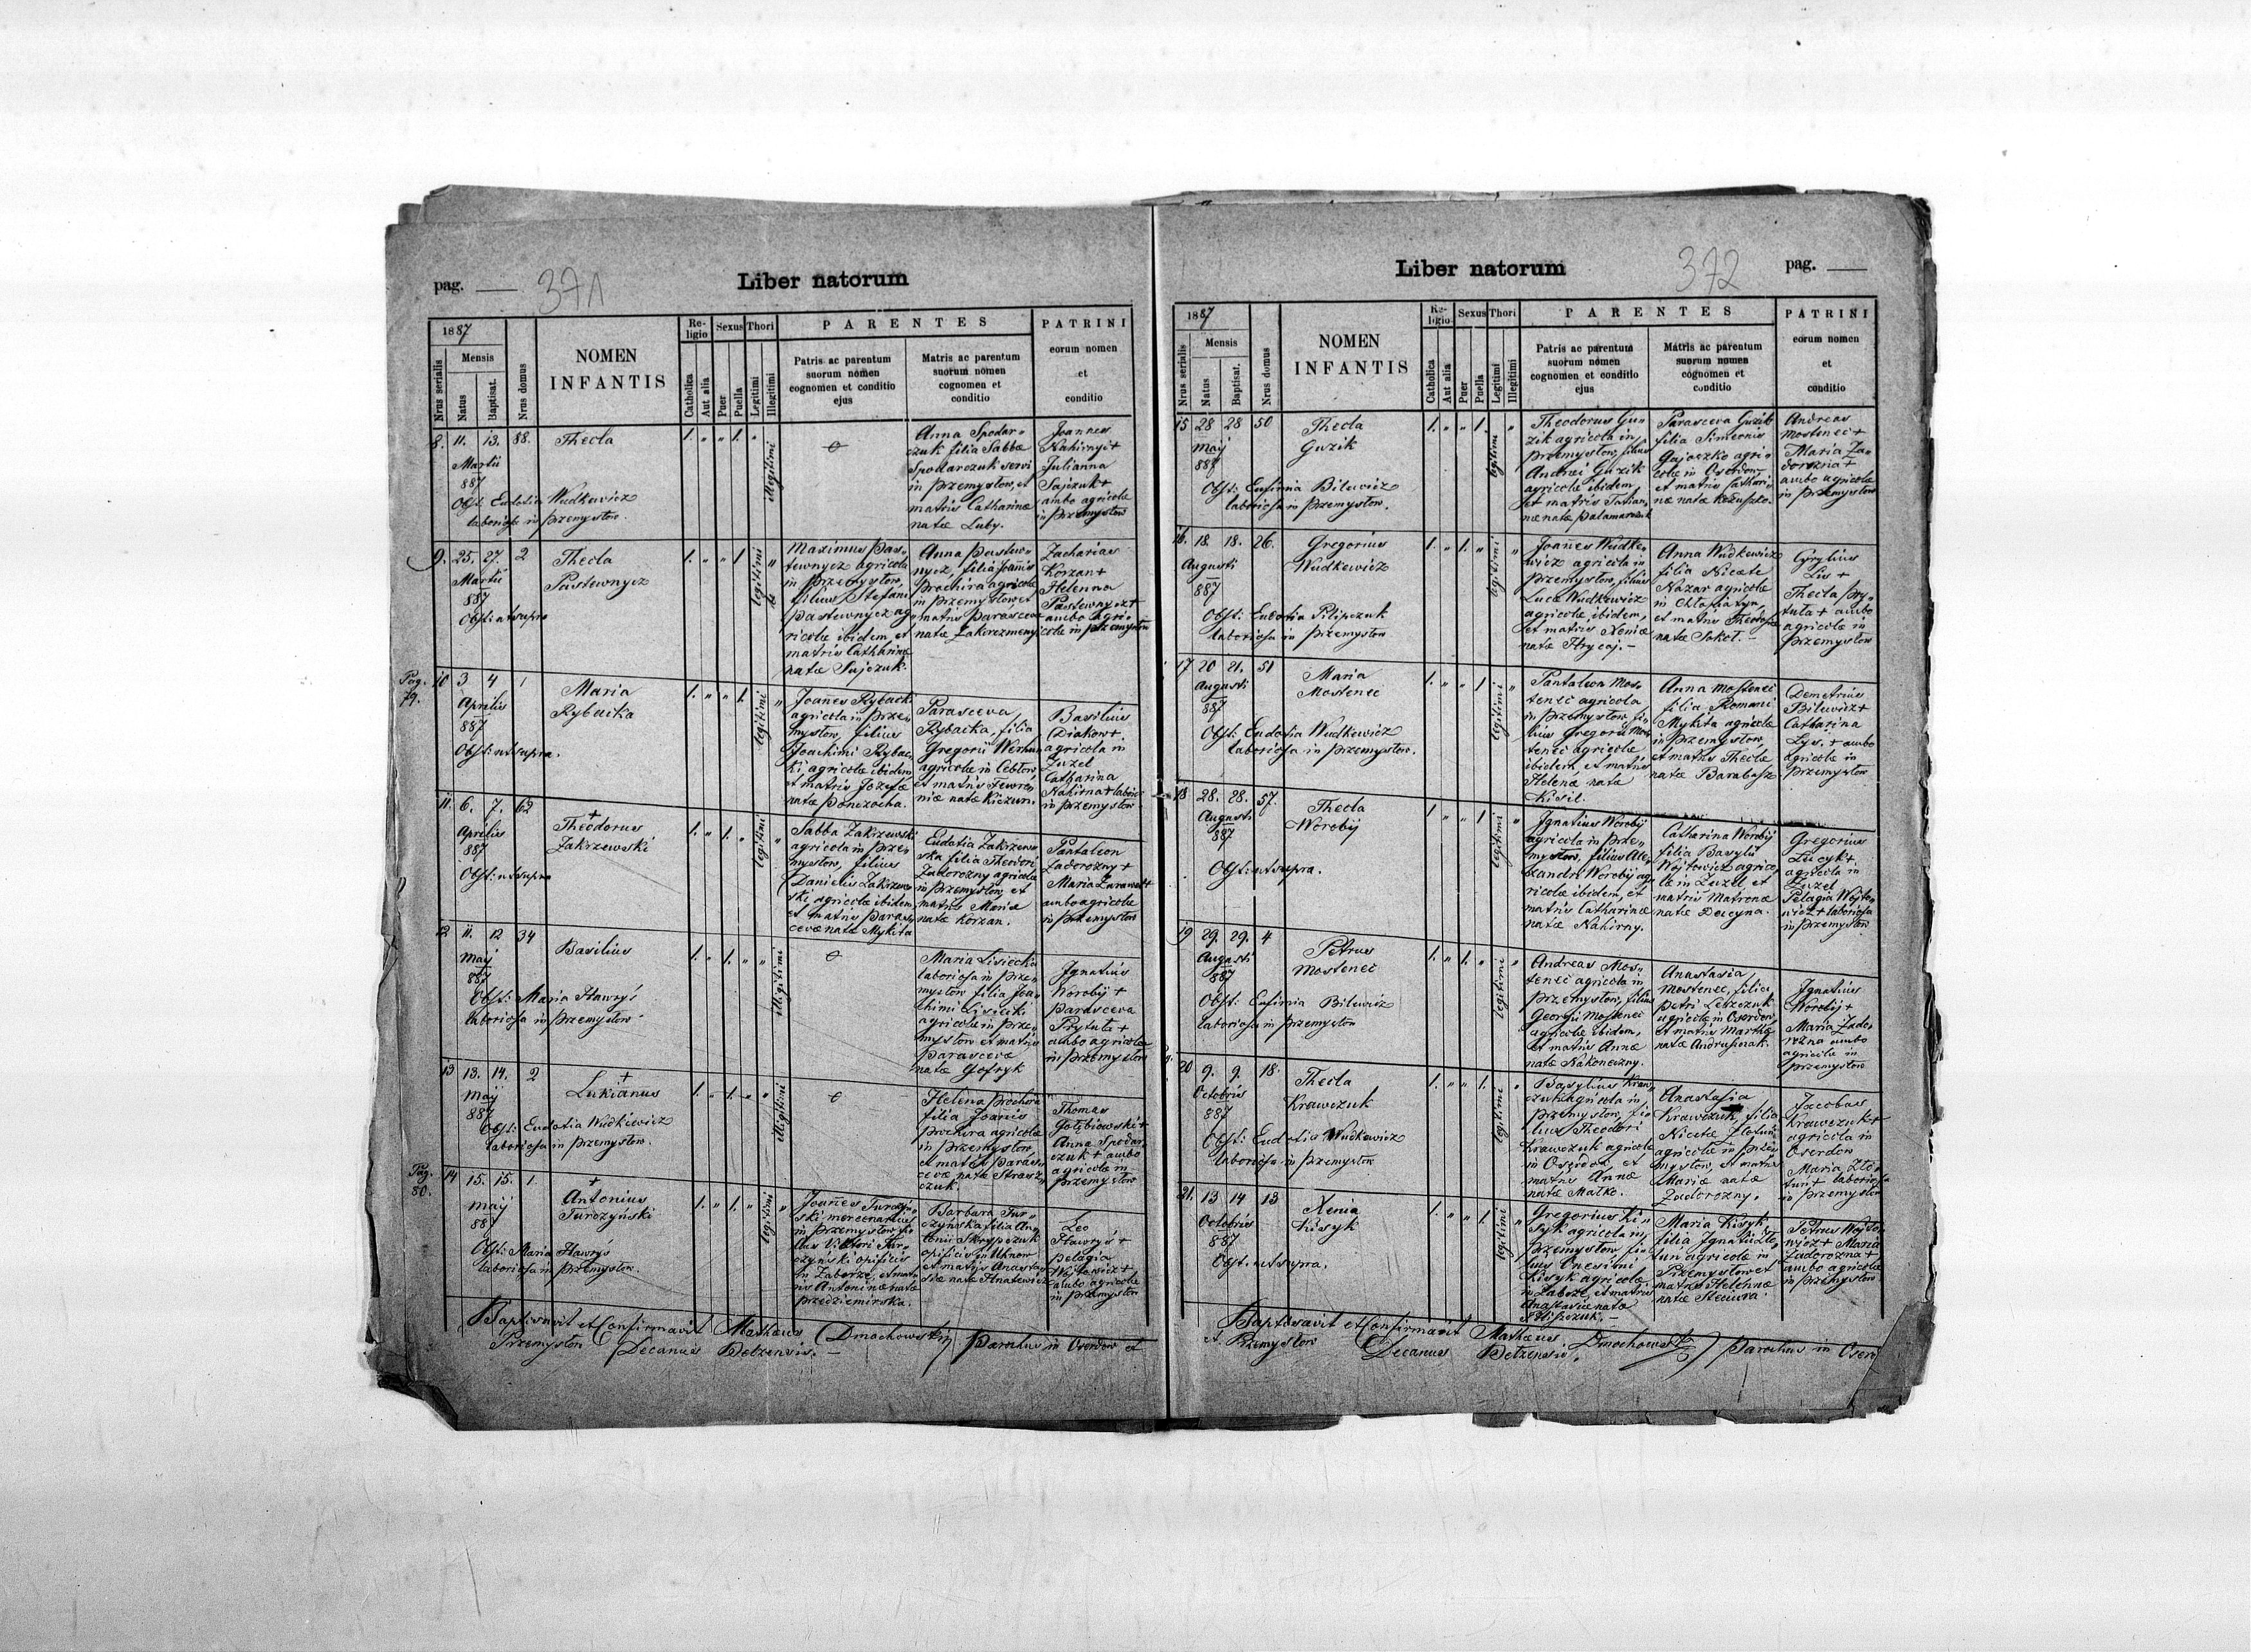 pag. 371
Liber natorum
1887
Nrus serialis
Mensis
Natus
Baptisat.
Nrus domus
NOMEN
INFANTIS
Re-
ligio
Catholica
Aut alia
Sexus
Puer
Puella
Thori
Legitimi
Illegitimi
PARENTES
Patris ac parentum
suorum nomen
cognomen et conditio
ejus
Matris ac parentum
suorum nomen
cognomen et
conditio
PATRINI
eorum nomen
et
conditio
8. 11. 13. 88. Thecla 1. „ „ 1. „ illegitimi
Martii
887
Obst: Eudotia Wudkewicz
laboriosa in Przemysłow.
Anna Spodar„
czuk filia Sabbæ
Spodarczuk servi
in Przemysłow, et
matris Catharinæ
natæ Luby.
Joannes
Nahirnyi +
Julianna
Sajczuk +
ambo agricolæ
in Przemysłow
9. 25. 27. 2 Thecla 1. „ „ 1 legitimi „
Martii Pastewnycz
887
Obst: ut supra
Maximus Pas„
tewnycz agricola
in Przemysłow,
filius Stefani
Pastewnycz ag„
ricolæ ibidem, et
matris Catharinæ
natæ Sujczuk.
Anna Pastew„
nycz, filia Joannis
Prochira agricolæ
in Przemysłow et
matris Parascevæ
natæ
Zacharias
Korzan +
Helenna
Pastewnycz +
ambo agri„
colæ in Przemysłow
Pag.
79.
10 3 4 1 Maria 1. „ „ 1. legitimi „
Aprilis Rybacka
887
Obst: ut supra.
Joañes Rybacki
agricola in Prze„
mysłow, filius
Joachimi Rybac„
ki agricolæ ibidem
et matris Jozefæ
natæ Ponczocha.
Parasceva
Rybacka, filia
Gregorii Werhun
agricolæ in Cebłow,
et matris Fewro„
niæ natæ Kiczun.
Basilius
Diakow +
agricola in
Zuzel
Catharina
Nahirna +
in Przemysłow
11. 6. 7. 62 + 1. „ 1. „ legitimi „
Aprilis Theodorus
887 Zakrzewski
Obst: ut supra
Sabba Zakrzewski
agricola in Prze„
mysłow, filius
Danielis Zakrzew„
ski agricolæ ibidem,
et matris Paras„
cevæ natæ Mykita
Eudotia Zakrzew„
ska filia Theodori
Zadorozny agricolæ
in Przemysłow, et
matris Mariæ
natæ Korzan.
Pantaleon
Zadorozny +
Maria
ambo agricolæ
in Przemysłow
12 11. 12 34 Basilius 1. „ 1. „ „ illegitimi
Maij
887
Obst: Maria Hawryś
laboriosa in Przemysłow
Maria Lisiecka
laboriosa in Prze„
mysłow filia Joa„
chimi Lisiecki
agricolæ in Prze„
mysłow et matris
Parascevæ
natæ Gofryk
Ignatius
Worobij +
Parasceva
Prytuła +
ambo agricolæ
in Przemysłow
13 13. 14. 2 + 1. „ 1. „ „ illegitimi
Maij Lukianus
887
Obst: Eudotia Wudkiewicz
laboriosa in Przemysłow.
Helena Prochira
filia Joannis
Prochira agricolæ
in Przemysłow,
et matris Paras„
cevæ natæ Strasz„
czuk.
Thomas
Gołębiowski +
Anna Spodar„
czuk + ambo
agricolæ in
Przemysłow
Pag.
80.
14 15. 15. 1. + 1. „ 1. „ legitimi „
Maij Antonius
887 Turczyński
Obst: Maria Hawryś
laboriosa in Przemysłow.
Joañes Turczyń„
ski mercenarius
in Przemysłow, fi„
lius Viktori Tur„
czyński opificis
in Zaborze, et mat„
ris Antoninæ natæ
Przedziemirska.
Barbara Tur„
czyńska filia An„
tonii Skrypczuk
opificis in Uhnow
et matris Anasta„
siæ natæ Hnatewicz
Leo
Hawryś +
Pelagia
Wojtowicz +
ambo agricolæ
in Przemysłow
Baptisavit et Confirmavit Mathæus Dmochowski Parochus in Oserdow et
Przemysłow Decanus Belzensis. —
Liber natorum
372 pag.
1887
Nrus serialis
Mensis
Natus
Baptisat.
Nrus domus
NOMEN
INFANTIS
Re-
ligio
Catholica
Aut alia
Sexus
Puer
Puella
Thori
Legitimi
Illegitimi
PARENTES
Patris ac parentum
suorum nomen
cognomen et conditio
ejus
Matris ac parentum
suorum nomen
cognomen et
conditio
PATRINI
eorum nomen
et
conditio
15 28 28 50 Thecla 1. „ „ 1 legitimi „
Maij Guzik
887
Obst: Eufimia Bilewicz
laboriosa in Przemysłow.
Theodorus Gu„
zik agricola in
Przemysłow, filius
Andrei Guzik
agricolæ ibidem,
et matris Tatian„
næ natæ Palamarczuk
Parasceva Guzik
filia Simeonis
Gajoczko agri„
colæ in Oserdow
et matris Cathari„
næ natæ
Andreas
Mostenec +
Maria Za„
dorozna +
ambo agricolæ
in Przemysłow
16. 18. 18. 26. Gregorius 1. „ 1. „ legitimi „
Augusti Wudkewicz
887
Obst: Eudotia Pilipczuk
laboriosa in Przemysłow
Joañes Wudke„
wicz agricola in
Przemysłow, filius
Lucæ Wudkewicz
agricolæ ibidem,
et matris Xeniæ
natæ Hrycaj. —
Anna Wudkewicz
filia Nicetæ
Nazar agricolæ
in Chłopiatyn,
et matris Theodosiæ
natæ Sokoł. —
Cyrylius
Lis +
Thecla Pry„
tuła + ambo
agricolæ in
Przemysłow
17 20 21. 51 Maria 1. „ „ 1 legitimi „
Augusti Mostenec
887
Obst: Eudotia Wudkewicz
laboriosa in Przemysłow.
Pantaleon Mos„
tenec agricola
in Przemysłow, fi„
lius Gregorii Mos„
tenec agricolæ
ibidem, et matris
Helenæ natæ
Kisil.
Anna Mostenec
filia Romani
Mykita agricolæ
in Przemysłow,
et matris Theclæ
natæ Barabasz
Demetrius
Bilewicz +
Catharina
Lys. + ambo
agricolæ in
Przemysłow
18 28. 28. 57. Thecla 1 „ „ 1 legitimi „
Augusti Worobij
887
Obst: ut supra.
Ignatius Worobij
agricola in Prze„
mysłow, filius Ale„
xandri Worobij ag„
ricolæ ibidem, et
matris Catharinæ
natæ Nahirny.
Catharina Worobij
filia Basylii
Wojtowicz agrico„
læ in Zuzel et
matris Matronæ
natæ
Gregorius
Lucyk +
agricola in
Zuzel
Pelagia Wojto„
wicz + laboriosa
in Przemysłow
19 29. 29. 4 Petrus 1. „ 1. „ legitimi „
Augusti Mostenec
887
Obst: Eufimia Bilewicz
laboriosa in Przemysłow
Andreas Mos„
tenec agricola in
Przemysłow, filius
Georgii Mostenec
agricolæ ibidem,
et matris Annæ
natæ Nakoneczny.
Anastasia
Mostenec, filia
Petri Leszczuk
agricolæ in Oserdow,
et matris Marthæ
natæ Andrusieczak.
Ignatius
Worobij +
Maria Zado„
rozna ambo
agricolæ in
Przemysłow
20 9. 9. 18. Thecla 1. „ „ 1. legitimi „
Octobris Krawczuk
887
Obst: Eudotia Wudkewicz
laboriosa in Przemysłow
Basylius Kraw„
czuk agricola in
Przemysłow, fi„
lius Theodori
Krawczuk agricolæ
in Oserdow, et
matris Annæ
natæ Małko.
Anastasia
Krawczuk, filia
Nicetæ
agricolæ in Prze„
mysłow, et matris
Mariæ natæ
Zadorozny.
Jacobus
Krawczuk +
agricola in
Oserdow
Maria Zło„
tun + laboriosa
in Przemysłow
21. 13 14 13 Xenia 1. „ „ 1. legitimi „
Octobris Kisyk
887
Obst: ut supra.
Gregorius Ki„
syk agricola in
Przemysłow, fi„
lius Onesimi
Kisyk agricolæ
in Zaborze, et matris
Anastasiæ natæ
Pilipczuk. —
Maria Kisyk
filia Ignatii Zło„
tun agricolæ in
Przemysłow et
matris Helennæ
natæ Steciura.
Petrus Wojto„
wicz + Maria
Zadorozna +
ambo agricolæ
in Przemysłow
Baptisavit et Confirmavit Mathæus Dmochowski Parochus in Oserd
et Przemysłow Decanus Belzensis.